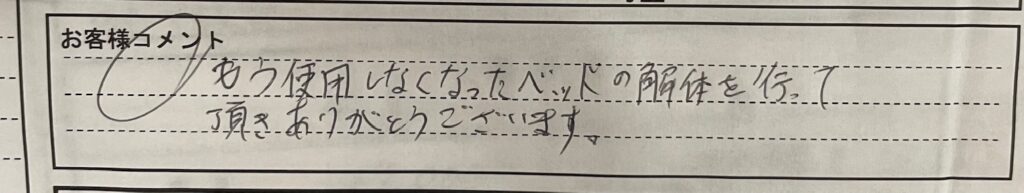 お客様コメント
もう使用しなくなったベッドの解体を行って
頂きありがとうございます。